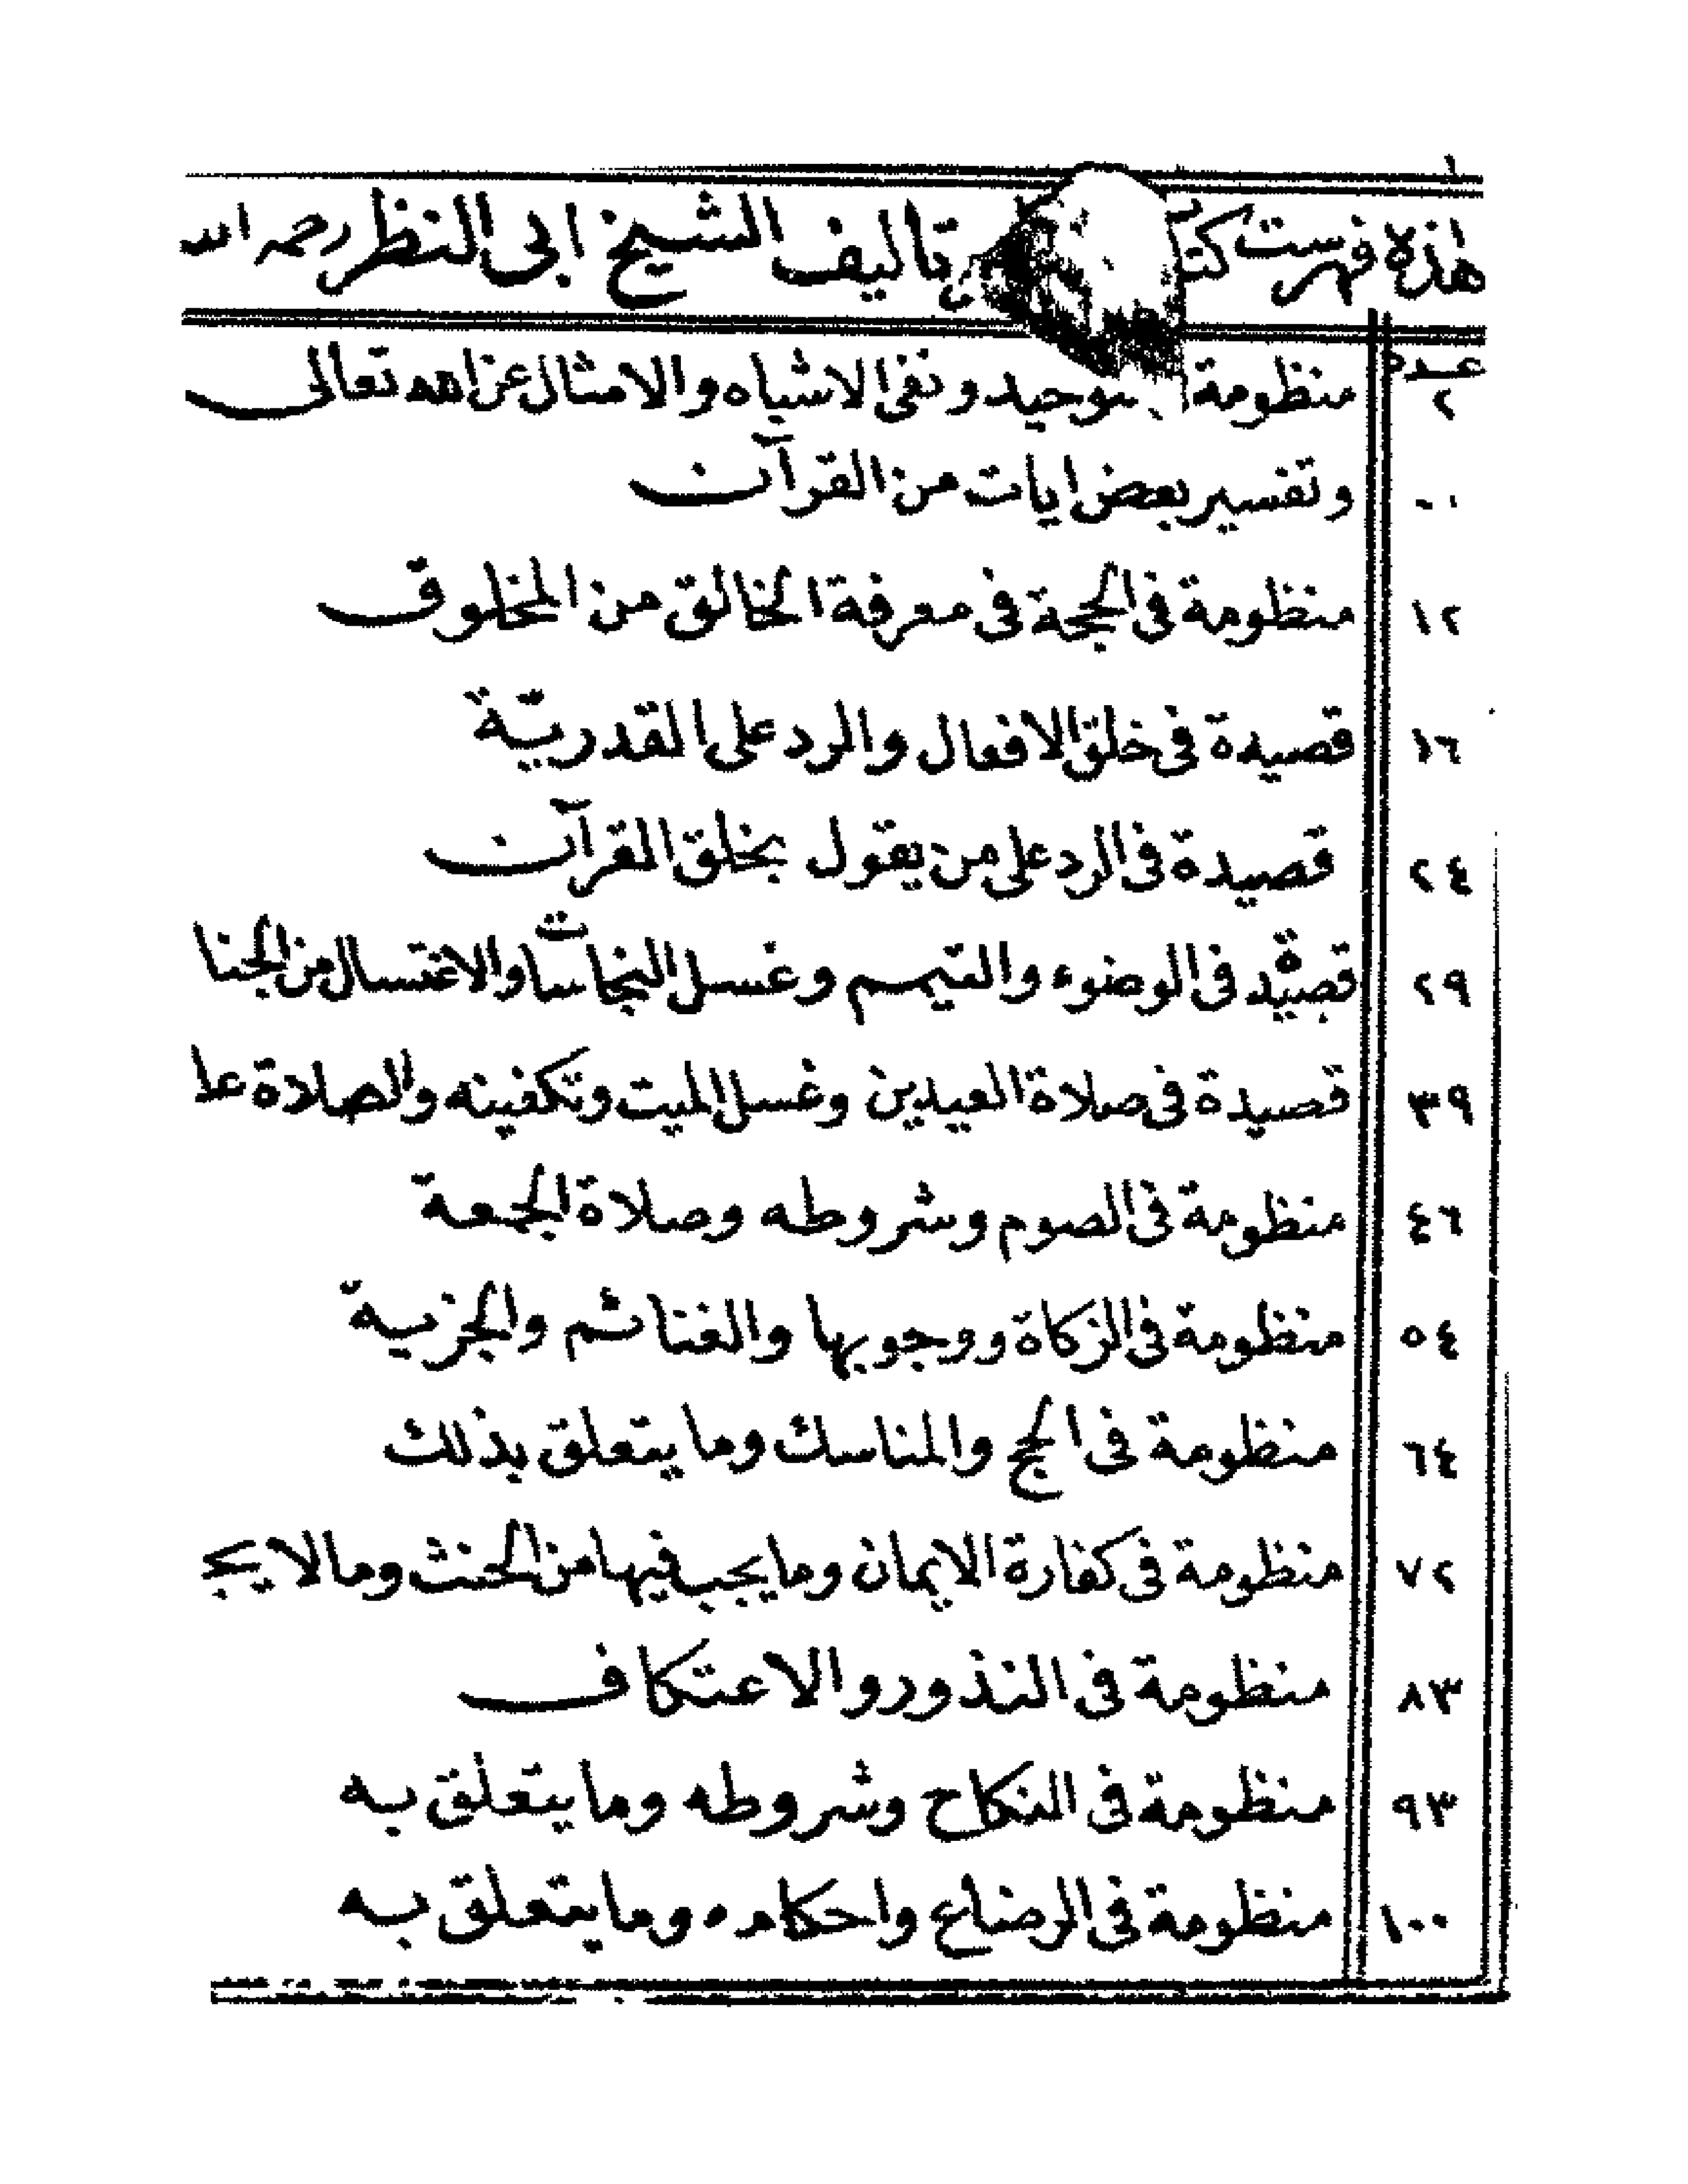 ١
هذه فهرست كتاب تاليف الشيخ ابى النظر رحمه الله
عدد
٢ منظومة التوحيد ونفى الاشباه والامثال عن الله تعالى
٠٠ وتفسير بعض ايات من القرآن
١٢ منظومة فى الحجة فى معرفة الخالق من المخلوق
١٦ قصيدة فى خلق الافعال والرد على القدريّة
٢٤ قصيدة فى الرد على من يقول بخلق القرآن
٢٩ قصيدة فى الوضوء والتيمم وغسل النجاسات والاغتسال من الجنا
٣٩ قصيدة فى صلاة العيدين وغسل الميت وتكفينه والصلاة علا
٤٦ منظومة فى الصوم وشروطه وصلاة الجمعة
٥٤ منظومة فى الزكاة ووجوبها والغنائم والجزية
٦٤ منظومة فى الحج والمناسك وما يتعلق بذلك
٧٢ منظومة فى كفارة الايمان وما يجب فيها من الحنث وما لا يج
٨٣ منظومة فى النذور والاعتكاف
٩٣ منظومة فى النكاح وشروطه وما يتعلق به
١٠٠ منظومة فى الرضاع واحكامه وما يتعلق به